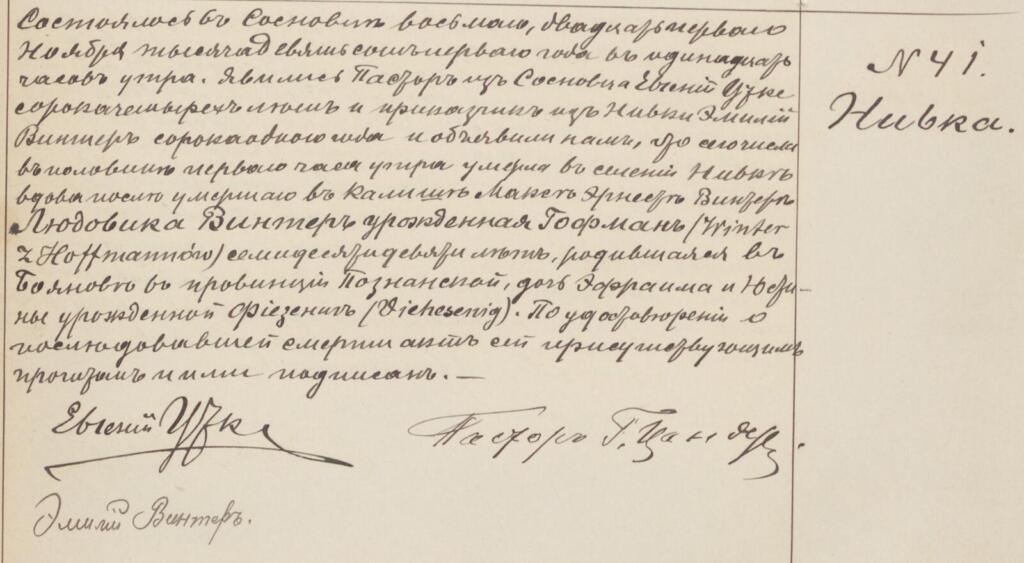 Состоялось въ Сосновцѣ восьмого, двадцать перваго
Ноября тысяча девятьсотъ перваго года въ одинадцать
часовъ утра. Явились Пасторъ изъ Сосновца Евгений Уԅке
сорокачетырехъ лѣтъ и приказчикъ изъ Нивки Эмилій
Винтеръ сорока одного года и объявили намъ, что сего числа
въ половинѣ перваго часа утра умерла въ селеніи Нивкѣ
вдова послѣ умершаго въ Калишѣ Макса Эрнеста Винтеръ
Людовика Винтеръ урожденная Гофманъ (Winter
z Hoffmannów) семидесяти девяти лѣтъ, родившаяся въ
Бояновѣ въ провинціи Познанской, дочь Эфраима и Юсти-
ны урожденной. По удостовѣреніи о
послѣдовавшей смерти актъ сей присутствующимъ
прочтенъ и ими подписанъ. —
N 41.
Нивка.
Евгеній
Пасторъ Г. Цандеръ.
Эмилій Винтеръ.